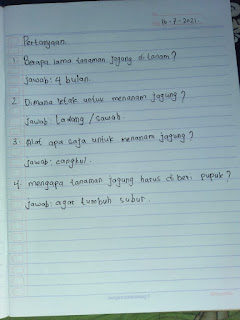 16-7-2021
Pertanyaan
1. Berapa lama tanaman jagung di tanam?
Jawab: 4 bulan.
2. Dimana letak untuk menanam jagung?
Jawab: Ladang / sawah
3. Alat apa saja untuk menanam jagung?
Jawab: cangkul.
4. mengapa tanaman jagung harus di beri pupuk?
Jawab: agar tumbuh subur.